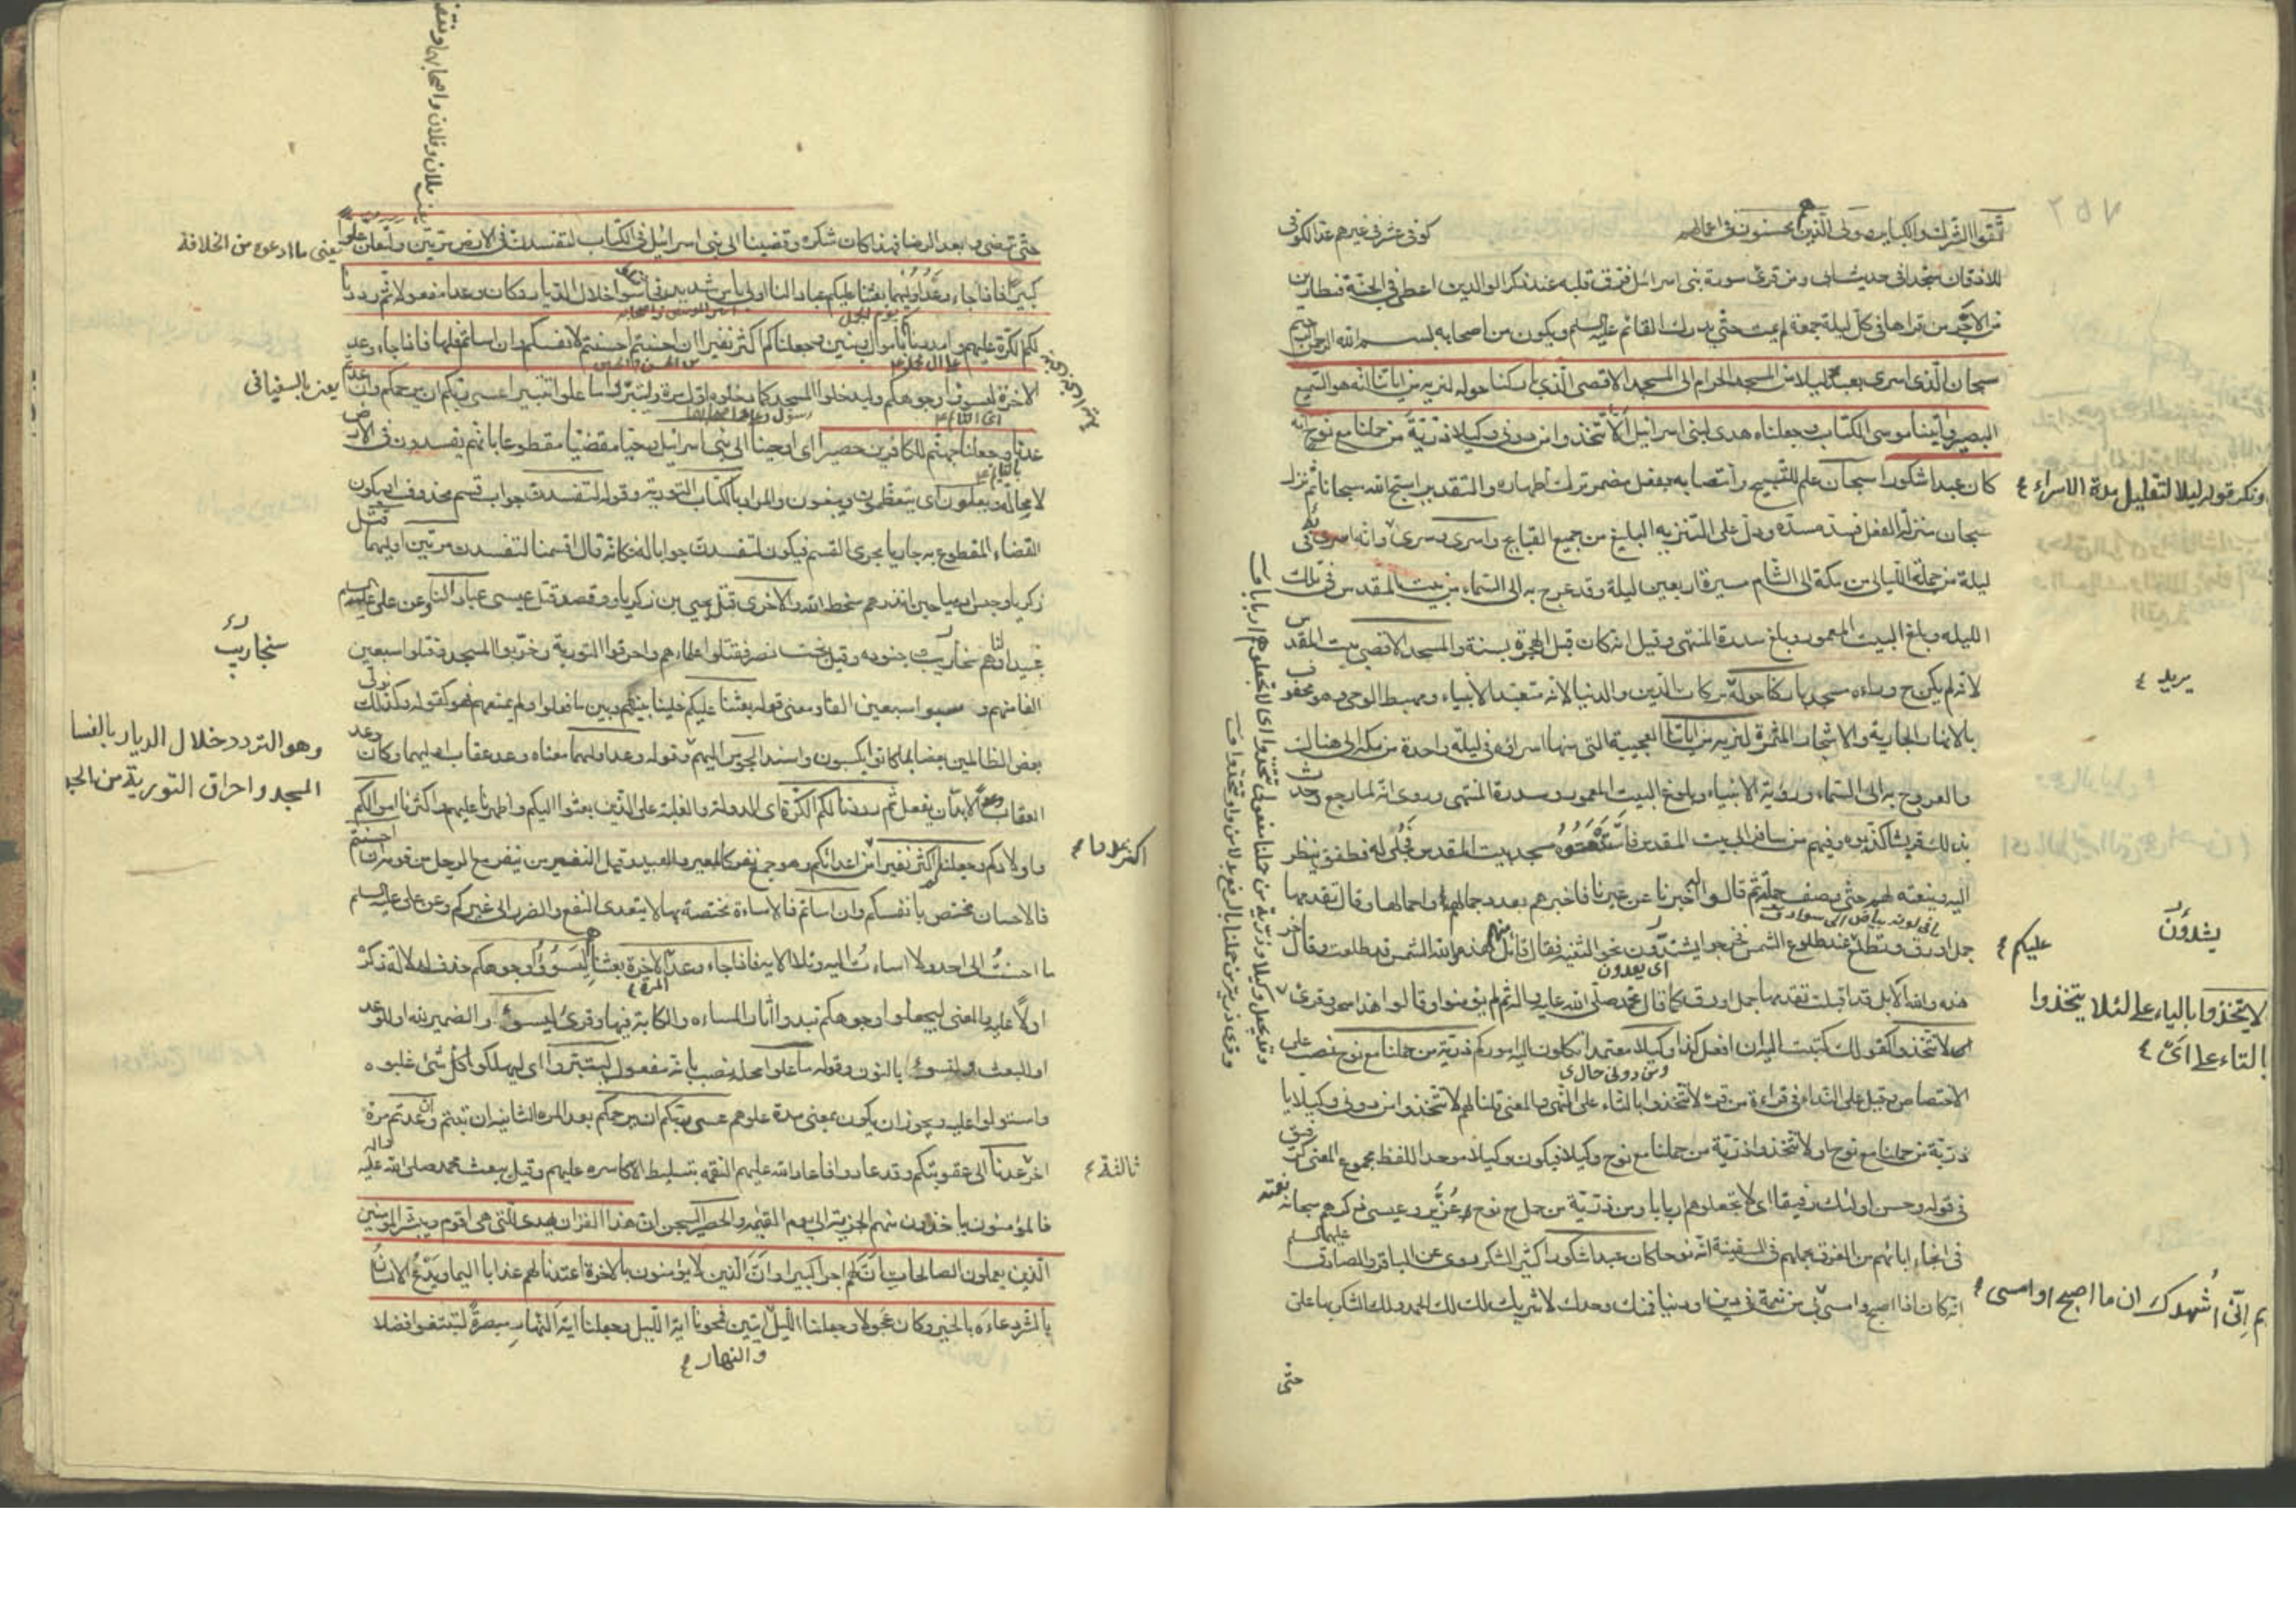 اتقوا الشرك والكبائر وولى الذين هم محسنون فى اعمالهم
كوفى عشر فى غيرهم عد الكوفى
للاذقان سجدا فى حديث ابى ومن قرئ سورة بنى اسرائيل فرق قلبه عند ذكر الوالدين اعطى فى الجنة قنطارين
من الاجر من قراها فى كل ليلة جمعة لم يمت حتى يدرك القائم عليه السلم ويكون من اصحابه بسم الله الرحمن الرحيم
سبحان الذى اسرى بعبده ليلا من المسجد الحرام الى المسجد الاقصى الذى باركنا حوله لنريه من اياتنا انه هو السميع
البصير واتينا موسى الكتاب وجعلناه هدى لبنى اسرائيل الا تتخذوا من دونى وكيلا ذرية من حملنا مع نوح انه
كان عبدا شكورا سبحان علم للتسبيح وانتصابه بفعل مضمر ترك اظهاره والتقدير اسبح الله سبحانا ثم نزل
ونكر قوله ليلا لتقليل مدة الاسراء
سبحان منزلة الفعل فسد مسده ودل على التنزيه البليغ من جميع القبايح واسرى وسرى وانه اسرى به فى
ليلة من جملة الليالى من مكة الى الشام مسيرة اربعين ليلة وقد عرج به الى السماء من بيت المقدس فى تلك
الليله وبلغ البيت المعمور وبلغ سدرة المنتهى وقيل انه كان قبل الهجرة بسنة والمسجد الاقصى بيت المقدس
لانه لم يكن ح وراءه مسجد باركنا حوله بركات الدين والدنيا لانه متعبد الانبياء ومهبط الوحى وهو محفوف
يريد
بالانهار الجارية والاشجار المثمرة لنريه من اياتنا العجيبة التى منها اسرائه فى ليلة واحدة من مكه الى هنالك
والعروج به الى السماء ورؤية الانبياء وبلوغ البيت المعمور وسدرة المنتهى وروى انه لما رجع وحدث
بذلك قريشا كذبوه وفيهم من سافر الى بيت المقدس فاستنعتوه مسجد بيت المقدس فجلى له فطفق ينظر
اليه وينعته لهم حتى وصف جملته ثم قالوا له اخبرنا عن عيرنا فاخبرهم بعدد جمالهم واحمالها وقال تقدمها
جمل اورق وتطلع عند طلوع الشمس فخرجوا يشتدون نحو الثنية فقال قائل منهم هذه والله الشمس قد طلعت وقال اخر
يشدون
عليكم
اى يعدون
هذه والله الابل قد اقبلت تقدمها جمل اورق كما قال محمد صلى الله عليه واله ثم لم يؤمنوا وقالوا هذا سحر وقرئ
لا يتخذوا بالياء على لئلا يتخذوا
بالتاء على اى
اى لا تتخذوا كقولك كتبت اليه ان افعل كذا وكيلا معتمدا تكلون اليه اموركم ذرية من حملنا مع نوح نصب على
الاختصاص وقيل على النداء فى قراءة من قرء لا تتخذوا بالتاء على النهى والمعنى قلنا لهم لا تتخذوا من دونى وكيلا يا
ذرية من حملنا مع نوح او لا تتخذوا ذرية من حملنا مع نوح وكيلا فيكون وكيلا موحد اللفظ مجموع المعنى كرفيق
فى قوله وحسن اولئك رفيقا اى لا تجعلوهم اربابا ومن ذرية من حمل مع نوح عزير وعيسى ذكرهم سبحانه نعمته
فى انجاء ابائهم من الغرق بحملهم فى السفينة انه نوحا كان عبدا شكورا كثير الشكر روى عن الباقر والصادق عليهما السلم
انه كان اذا اصبح وامسى
م انى اشهدك ان ما اصبح او امسى
بى من نعمة فى دين او دنيا فمنك وحدك لا شريك لك لك الحمد ولك الشكر بها على
حتى
حتى ترضى وبعد الرضا فهذا كان شكره وقضينا الى بنى اسرائيل فى الكتاب لتفسدن فى الارض مرتين ولتعلن علوا
يعنى ما ادعوه من الخلافة
كبيرا فاذا جاء وعد اوليهما بعثنا عليكم عبادا لنا اولى باس شديد فجاسوا خلال الديار وكان وعدا مفعولا ثم رددنا
يوم الجمل
لكم الكرة عليهم وامددناكم باموال وبنين وجعلناكم اكثر نفيرا ان احسنتم احسنتم لانفسكم وان اساتم فلها فاذا جاء وعد
الاخرة ليسوؤا وجوهكم وليدخلوا المسجد كما دخلوه اول مرة وليتبروا ما علوا تتبيرا عسى ربكم ان يرحمكم وان عدتم
يعنى بالسفيانى
عدنا وجعلنا جهنم للكافرين حصيرا اى اوحينا الى بنى اسرائيل وحيا مقضيا مقطوعا بانهم يفسدون فى الارض
لا محالة ويعلون اى يتعظمون ويبغون والمراد بالكتاب التورية وقوله لتفسدن جواب قسم محذوف او يكون
القضاء المقطوع به جاريا مجرى القسم فيكون لتفسدن جوابا له كانه قال اقسمنا لتفسدن مرتين اوليهما قتل
زكريا وحبس ارميا حين انذرهم سخط الله والاخرى قتل يحيى بن زكريا وقصد قتل عيسى عبادا لنا وعن على عليه السلم
عبيدا لنا وهم سنحاريب وجنوده وقيل بخت نصر فقتلوا علماءهم واحرقوا التورية وخربوا المسجد وقتلوا سبعين
سنجاريب
الفا منهم وسبوا سبعين الفا ومعنى قوله بعثنا عليكم خلينا بينهم وبين ما فعلوا ولم يمنعهم فهو كقوله وكذلك نولى
بعض الظالمين بعضا بما كانوا يكسبون واسند الجوس اليهم وقوله وعد اوليهما معناه وعد عقاب اوليهما وكان وعد
وهو التردد خلال الديار بالفسا
المسجد واحراق التورية من الجو
العقاب وعدا لابد ان يفعل ثم رددنا لكم الكرة اى الدولة والغلبة على الذين بعثوا اليكم واظهرنا عليهم واكثرنا اموالكم
واولادكم وجعلناكم اكثر نفيرا من اعدائكم وهو جمع نفر كالمعيز والعبيد وقيل النفير من ينفر مع الرجل من قومه ان احسنتم
اكثر عددا
فالاحسان مختص بانفسكم وان اساتم فالاساءة مختصة بها لا يتعدى النفع والضرر الى غيركم وعن على عليه السلم
ما احسنت الى احد ولا اسات اليه وتلا الاية فاذا جاء وعد الاخرة بعثنا ليسوؤا وجوهكم حذف لدلالة ذكره
المرة
اولا عليه والمعنى ليجعلوا وجوهكم تبدوا اثار المساءه والكابة فيها وقرئ ليسوء والضمير لله او للوعد
او للبعث ولنسوء بالنون وقوله ما علوا محله نصب بانه مفعول ليتبروا اى ليهلكوا كل شئ غلبوه
واستولوا عليه ويجوز ان يكون بمعنى مدة علوهم عسى ربكم ان يرحمكم بعد المرة الثانية ان تبتم وان عدتم مرة
اخرى عدنا الى عقوبتكم وقد عادوا فاعاد الله عليهم النقمه بتسليط الاكاسره عليهم وقيل ببعث محمد صلى الله عليه واله
ثالثة
فالمؤمنون ياخذون منهم الجزية الى يوم القيمة والحصير السجن ان هذا القران يهدى للتى هى اقوم ويبشر المؤمنين
الذين يعملون الصالحات ان لهم اجرا كبيرا وان الذين لا يؤمنون بالاخرة اعتدنا لهم عذابا اليما ويدع الانسان
بالشر دعاءه بالخير وكان عجولا وجعلنا الليل ايتين فمحونا اية الليل وجعلنا اية النهار مبصرة لتبتغوا فضلا
والنهار